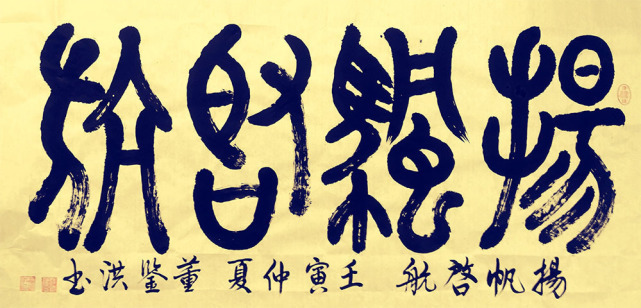 揚帆啓航
揚帆啓航 壬寅仲夏 董鑒洪书